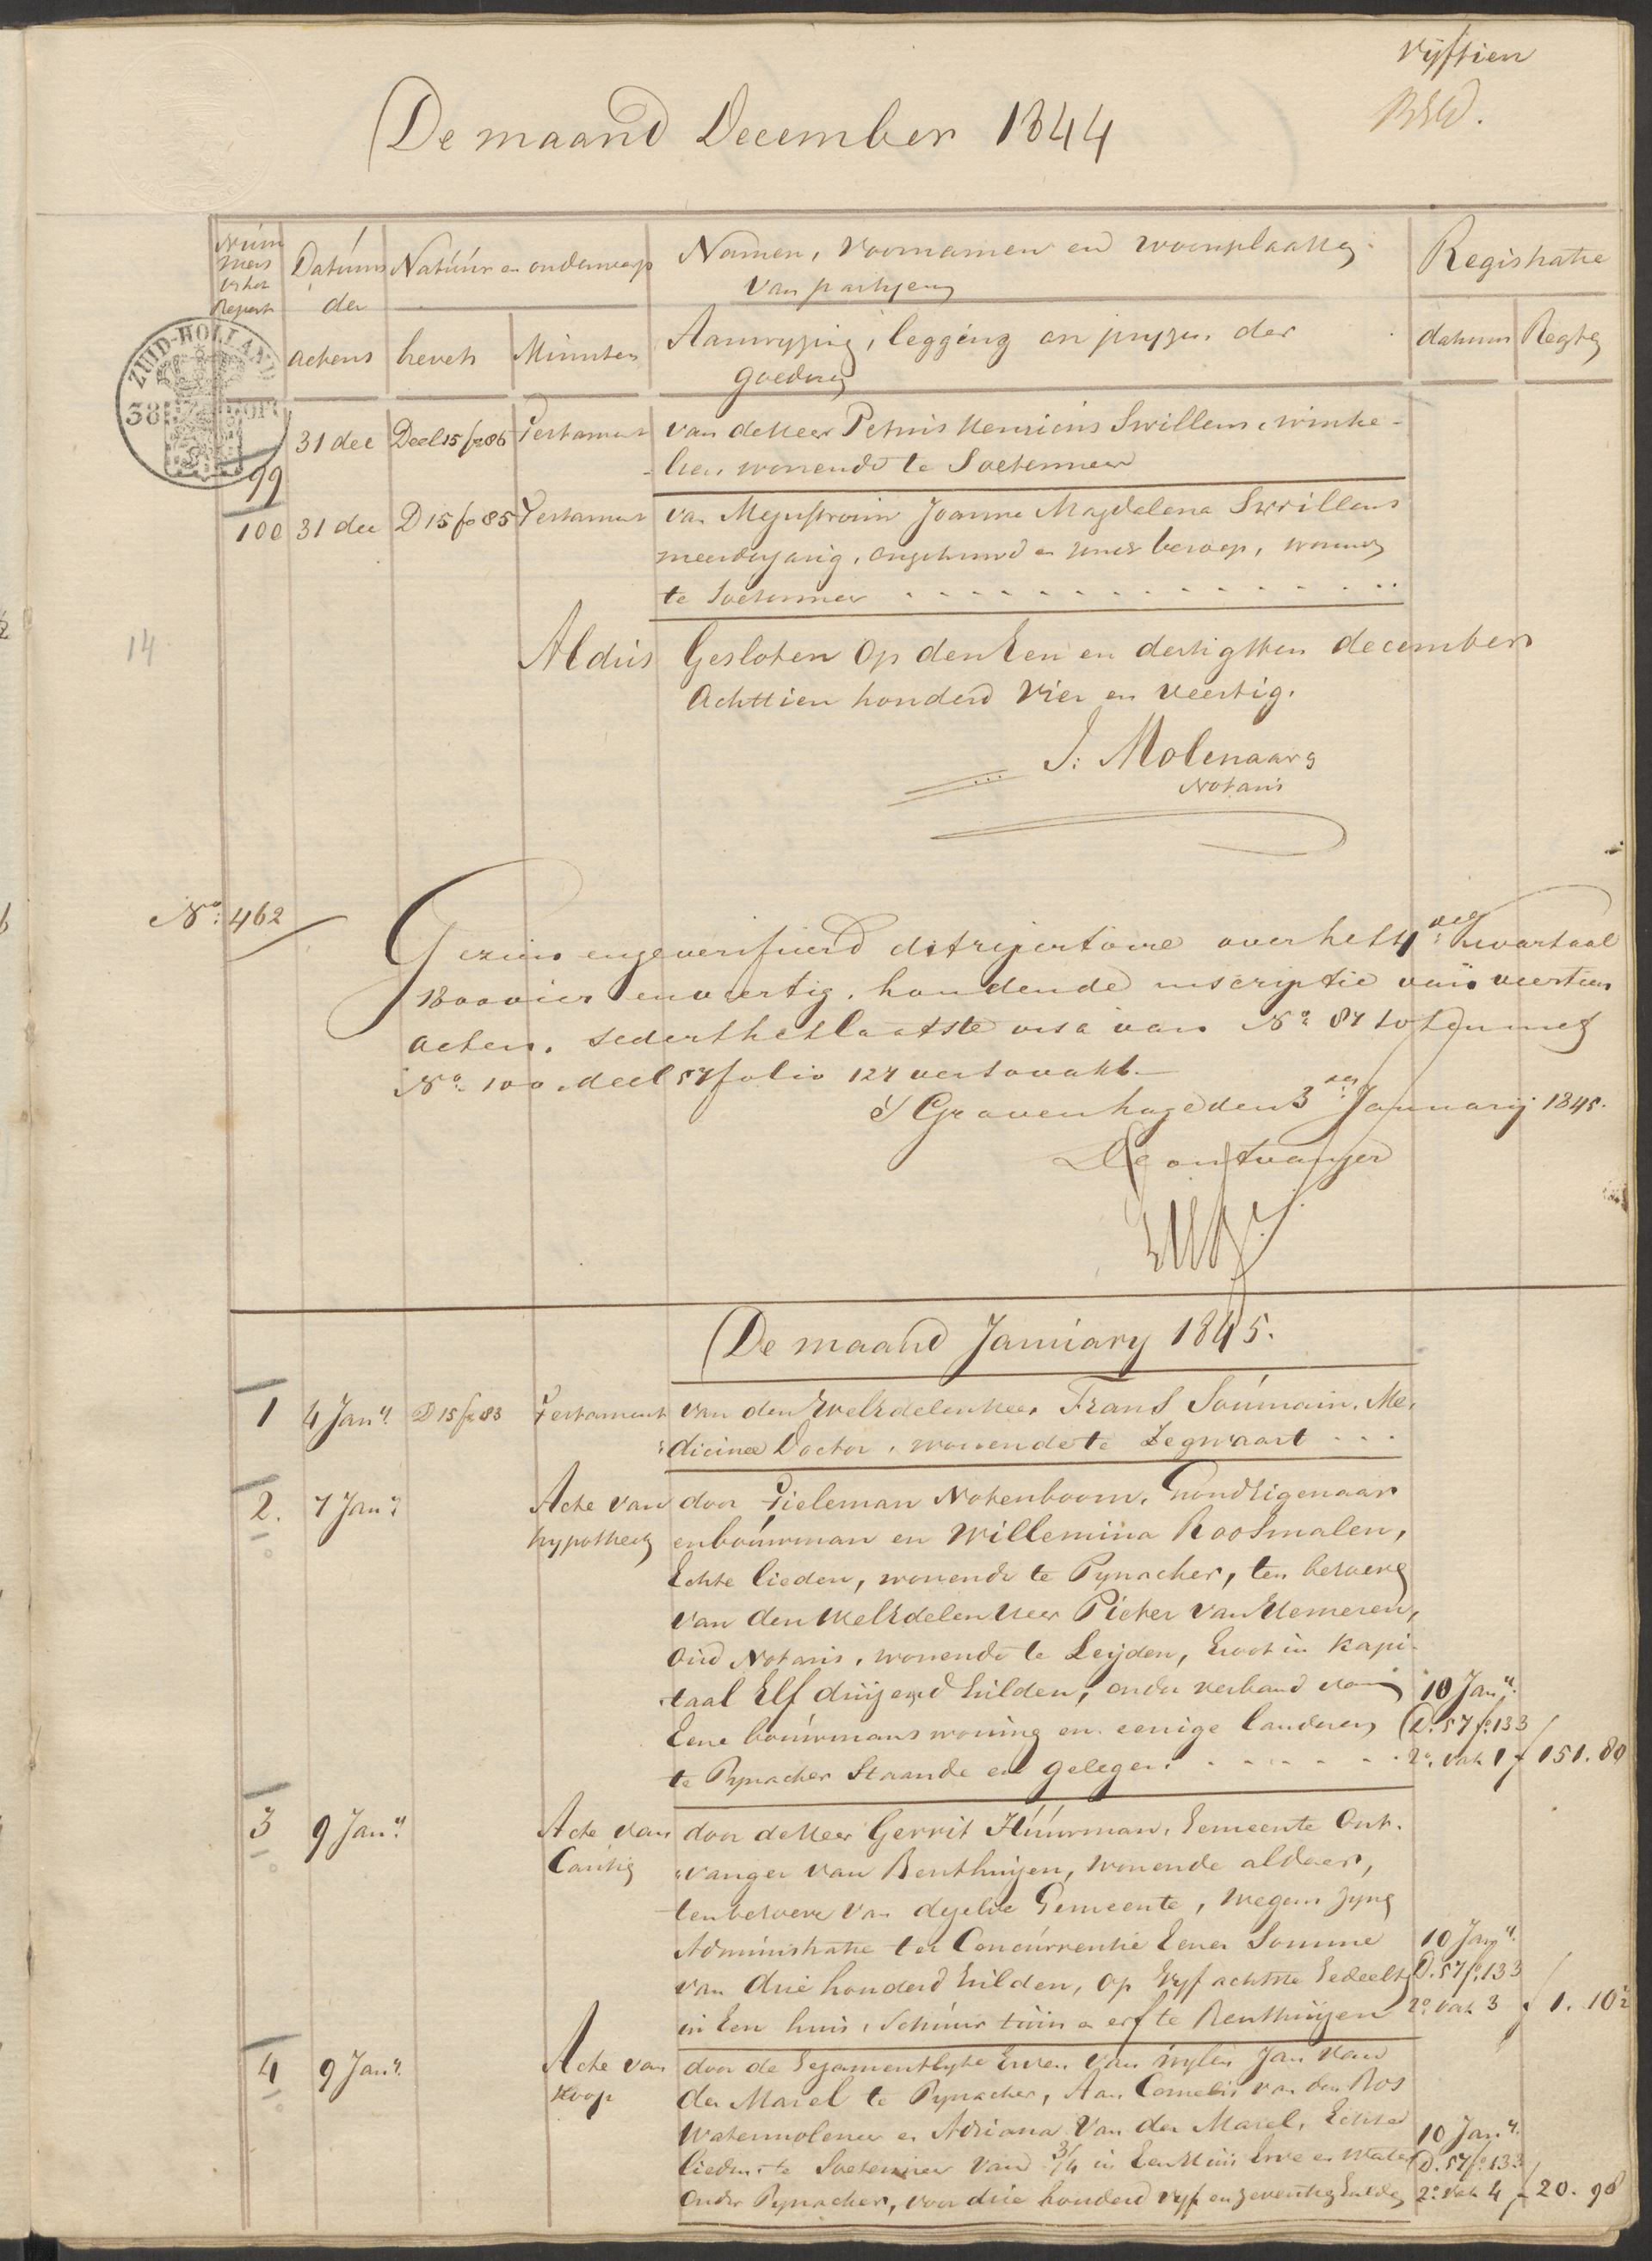 vijftien
De maand December 1844
Num
mers
van het
Repert
Datums
der
actens
Natuur en onderwerp
brevets
Minuten
Namen, voornamen en woonplaatsen
van partyen
Aanwyzing, legging en pryzen der
goederen
Registratie
datums
Regten
ZUID-HOLLAND
38
99
31 dec
Deel 15 fo 86
Testament
van de Heer Petrus Henricus Swillens, winke-
lier, wonende te Soetermeer
100
31 dec
D 15 fo 85
Testament
van Mejufvrouw Joanna Magdalena Swillens
meerderjarig, ongehuwd en zonder beroep, wonende
te Soetermeer
14
Aldus Gesloten op den Een en dertigsten december
Achttien honderd vier en veertig.
J. Molenaar
Notaris
No. 462
Gezien en geverifieerd dit repertoire over het 4de kwartaal
1800 vier en veertig, houdende inscriptie van veertien
acten, sedert het laatste visa van No. 87 tot en met
No. 100, deel 57 folio 127 verso vak 6.
's Gravenhage den 3en January 1845.
De ontvanger
De maand January 1845.
1
4 Jany.
D 15 fo 83
Testament
van den WelEdelen Heer Frans Soumain, Me-
dicinae Doctor, wonende te Zegwaart
2.
7 Jany
Acte van
hypotheek
door Tieleman Notenboom, GrondEigenaar
en bouwman en Willemina Roosmalen,
Echte lieden, wonende te Pynacker, ten behoeve
van den WelEdelen Heer Pieter van Hemeren,
Oud Notaris, wonende te Leyden, Groot in kapi-
taal Elf duizend Gulden, onder verband van
Eene bouwmans woning en eenige landeryen
te Pynacker Staande en gelegen.
10 Jany.
D. 57 fo. 133
2o. vak 1
f 151.80
3
9 Jany.
Acte van
Cautie
door de Heer Gerrit Huurman, Gemeente Ont-
vanger van Benthuizen, wonende aldaar,
ten behoeve van dezelve Gemeente, wegens zyne
Administratie ter Concurrentie Eener Somme
van drie honderd Gulden, op Vyf achtste Gedeelten
in Een huis, Schuur tuin en erf te Benthuizen
10 Jany.
D. 57 fo. 133
2o. vak 3
f 1.10½
4
9 Jany.
Acte van
Koop
door de Gezamentlyke Erven van wylen Jan van
der Marel te Pynacker, Aan Cornelis van den Bos
Watermolenaar en Adriana van der Marel, Echte
lieden te Soetermeer van 3/4 in Een Huis Erve en Water
Onder Pynacker, voor drie honderd vyf en zeventig Gulden
10 Jany.
D. 57 fo. 133
2o. vak 4
f 20.98